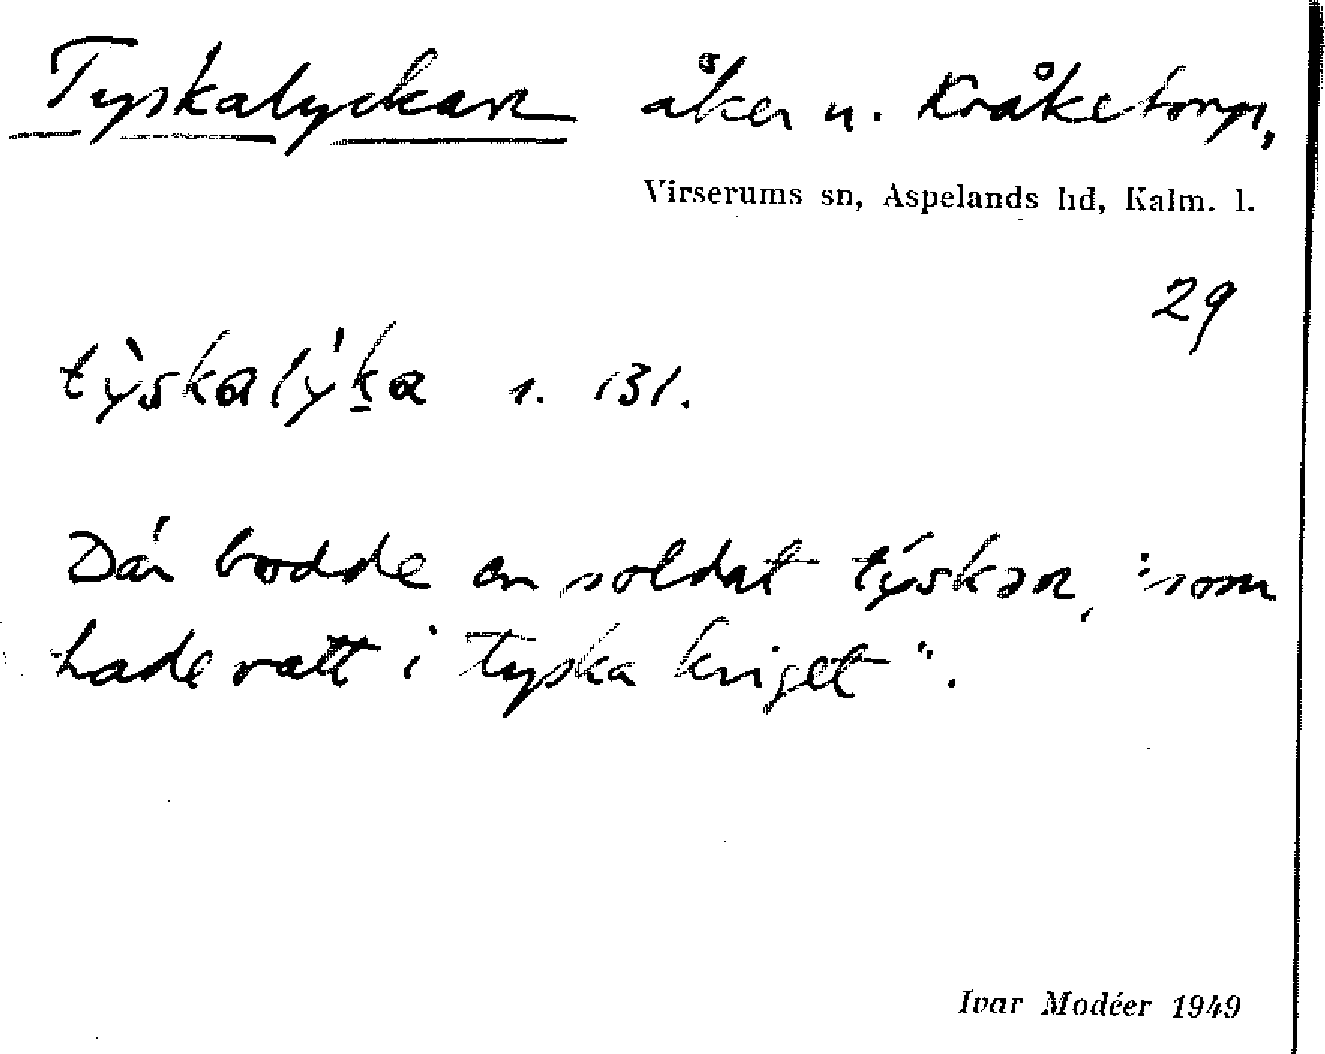 Tyskalyckan åker n. Kråketorp,
Virserums sn, Aspelands hd, Kalm. l.
29
tỳskalýḵa s. 131.
Där bodde en soldat týskən, "som
hade vatt i tyska kriget".
Ivar Modéer 1949